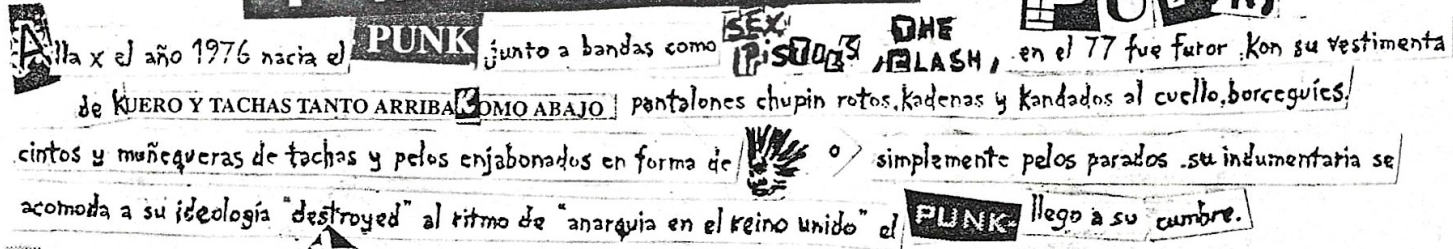 Alla x el año 1976 nacia el PUNK junto a bandas como SEX PISTOLS, THE CLASH, en el 77 fue furor .Kon su vestimenta
de KUERO Y TACHAS TANTO ARRIBA KOMO ABAJO pantalones chupin rotos,kadenas y kandados al cuello,borceguíes.
cintos y muñequeras de tachas y pelos enjabonados en forma de o simplemente pelos parados .su indumentaria se
acomoda a su ideología "destroyed" al ritmo de "anarquia en el reino unido" el PUNK llego a su cumbre.